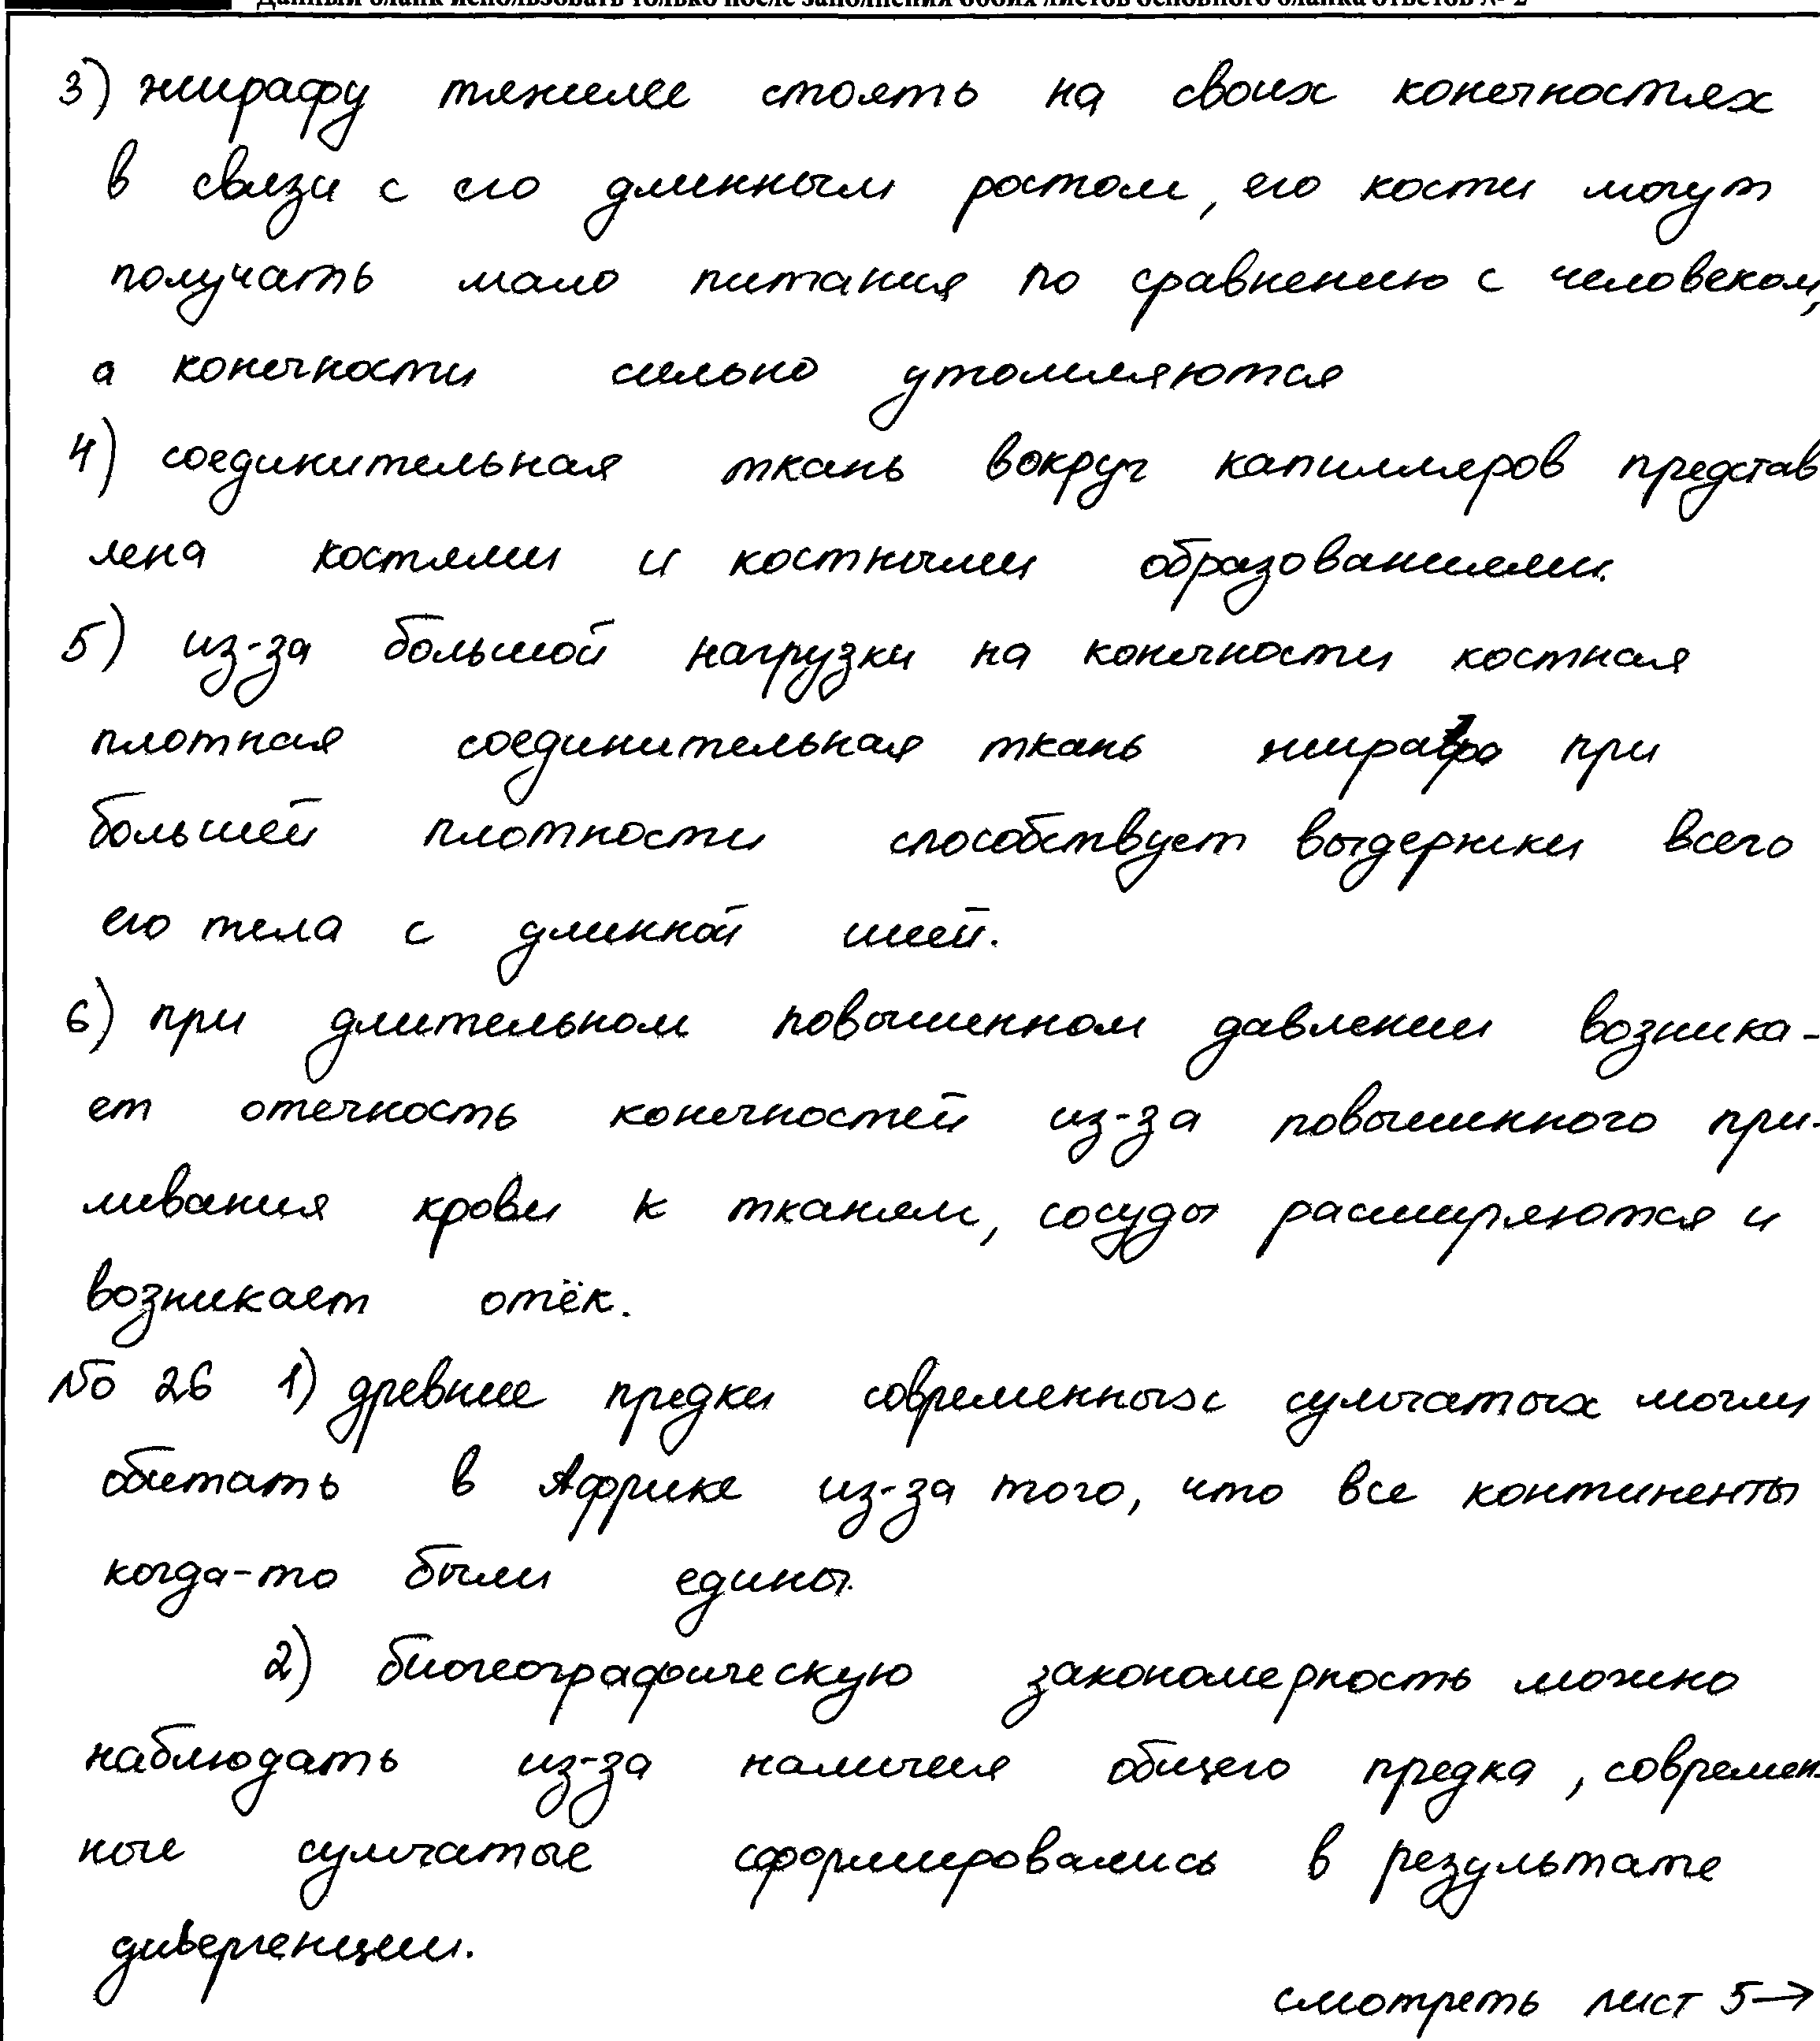 Данный бланк использовать только после заполнения обоих листов основного бланка ответов № 2
3) жирафу тяжелее стоять на своих конечностях
в связи с его длинным ростом, его кости могут
получать мало питания по сравнению с человеком,
а конечности сильно утомляются
4) соединительная ткань вокруг капилляров представ
лена костями и костными образованиями.
5) из-за большой нагрузки на конечности костная
плотная соединительная ткань жирафа при
большей плотности способствует выдержки всего
его тела с длинной шеей.
6) при длительном повышенном давлении возника-
ет отечность конечностей из-за повышенного при-
ливания крови к тканям, сосуды расширяются и
возникает отёк.
№ 26 1) древние предки современных сумчатых могли
обитать в Африке из-за того, что все континенты
когда-то были едины.
2) биогеографическую закономерность можно
наблюдать из-за наличия общего предка, современ-
ные сумчатые сформировались в результате
дивергенции.
смотреть лист 5→